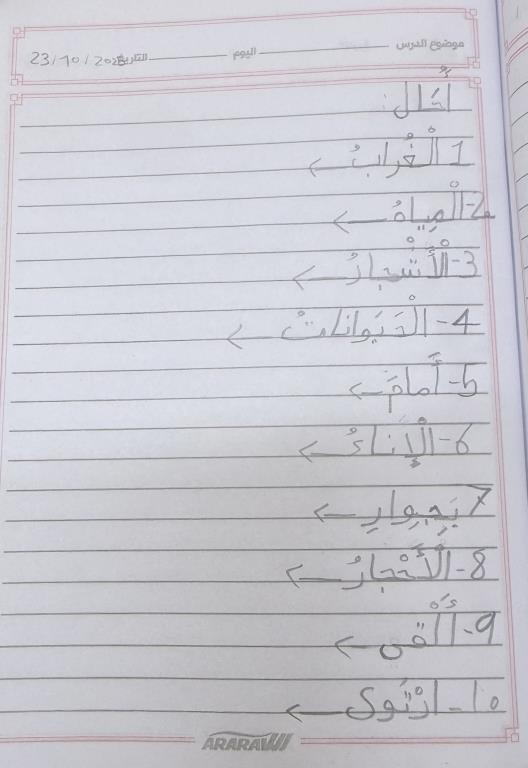 موضوع الدرس ــــــــ اليوم ــــــــ التاريخ 23/10/2025
أمثال:
1 الْغُرابُ ←
2- الْمِياهُ ←
3- الْأَشْجارُ ←
4- الْحَيَواناتُ ←
5- أَمامَ ←
6- الْإِناءُ ←
7 بِجِوارِ ←
8- الْأَحْجارُ ←
9- أَلْقى ←
10- ارْتَوى ←
ARARAT